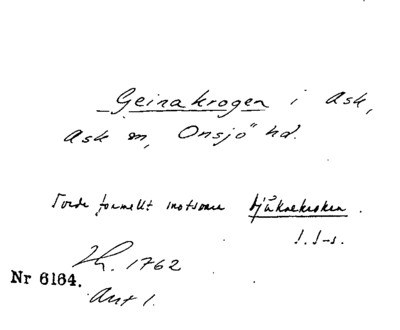 Geinakrogen i Ask,
Ask sn, Onsjö hd.
Torde formellt motsvara
J. S-s.
Th. 1762
Nr 6164.
Ant 1.